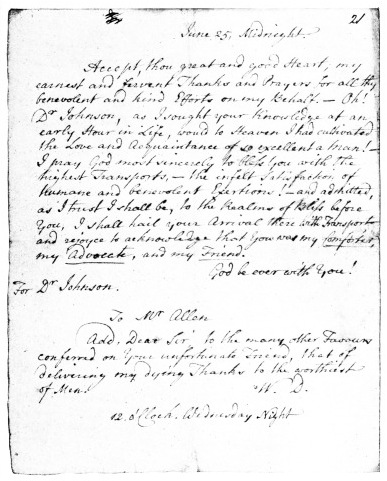 21
June 25, Midnight.
Accept, thou great and good Heart, my
earnest and fervent Thanks and Prayers for all thy
benevolent and kind Efforts on my Behalf. — Oh!
Dr Johnson, as I sought your Knowledge at an
early Hour in Life, would to Heaven I had cultivated
the Love and Acquaintance of so excellent a Man! —
I pray God most sincerely to bless You with the
highest Transports, — the infelt Satisfaction of
humane and benevolent Exertions! — and admitted,
as I trust I shall be, to the Realms of Bliss before
You, I shall hail your Arrival there with Transports
and rejoyce to acknowledge that You was my Comforter,
my Advocate, and my Friend.
God be ever with You!
For Dr Johnson.
To Mr Allen
Add, Dear Sir to the many other Favours
conferred on Your unfortunate Friend, that of
delivering my dying Thanks to the worthiest
of Men.
W. D.
12. o'Clock. Wednesday Night